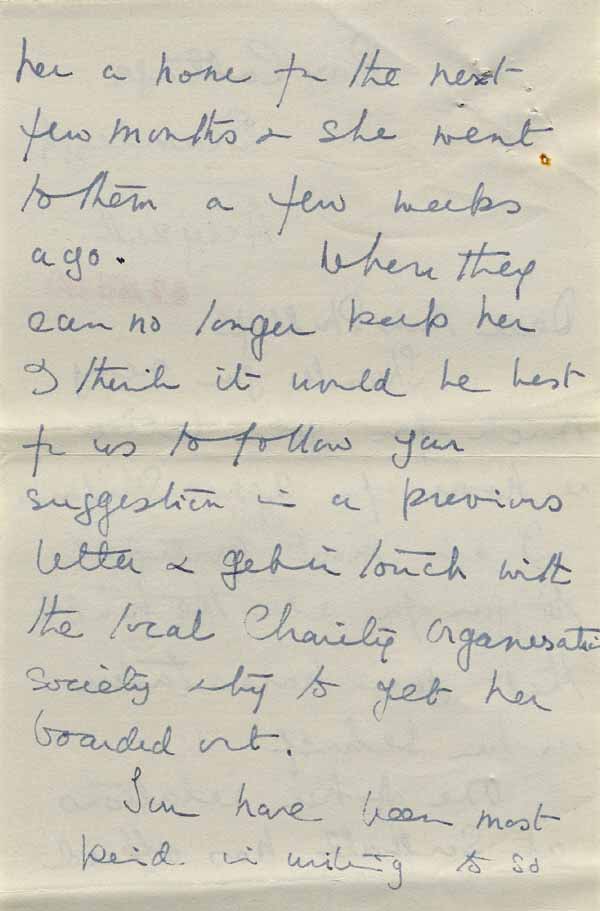 her a home for the next
few months & she went
to them a few weeks
ago. When they
can no longer keep her
I think it would be best
for us to follow your
suggestion in a previous
letter & get in touch with
the local Charity Organisation
Society & try to get her
boarded out.
You have been most
kind in writing to so